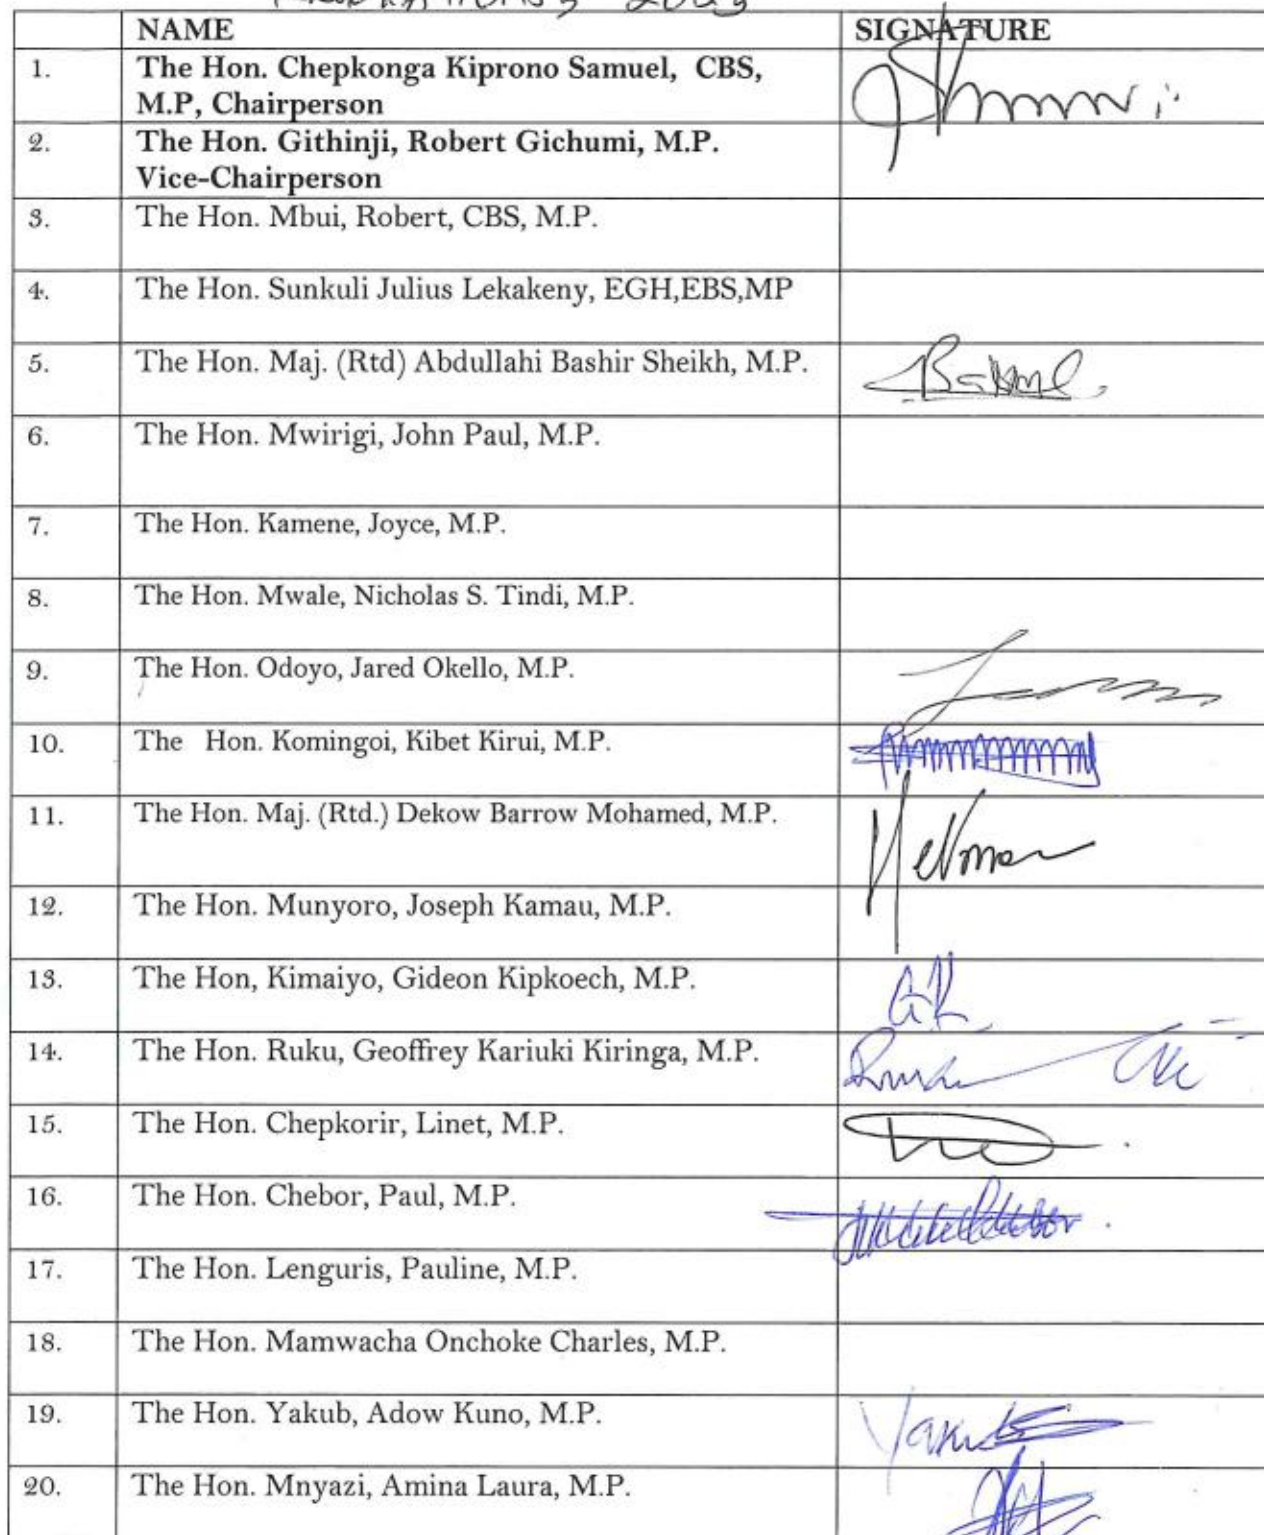 2023
NAME SIGNATURE
1. The Hon. Chepkonga Kiprono Samuel, CBS,
M.P, Chairperson
2. The Hon. Githinji, Robert Gichumi, M.P.
Vice-Chairperson
3. The Hon. Mbui, Robert, CBS, M.P.
4. The Hon. Sunkuli Julius Lekakeny, EGH,EBS,MP
5. The Hon. Maj. (Rtd) Abdullahi Bashir Sheikh, M.P.
6. The Hon. Mwirigi, John Paul, M.P.
7. The Hon. Kamene, Joyce, M.P.
8. The Hon. Mwale, Nicholas S. Tindi, M.P.
9. The Hon. Odoyo, Jared Okello, M.P.
10. The Hon. Komingoi, Kibet Kirui, M.P.
11. The Hon. Maj. (Rtd.) Dekow Barrow Mohamed, M.P.
12. The Hon. Munyoro, Joseph Kamau, M.P.
13. The Hon, Kimaiyo, Gideon Kipkoech, M.P. GK
14. The Hon. Ruku, Geoffrey Kariuki Kiringa, M.P.
15. The Hon. Chepkorir, Linet, M.P.
16. The Hon. Chebor, Paul, M.P.
17. The Hon. Lenguris, Pauline, M.P.
18. The Hon. Mamwacha Onchoke Charles, M.P.
19. The Hon. Yakub, Adow Kuno, M.P.
20. The Hon. Mnyazi, Amina Laura, M.P.